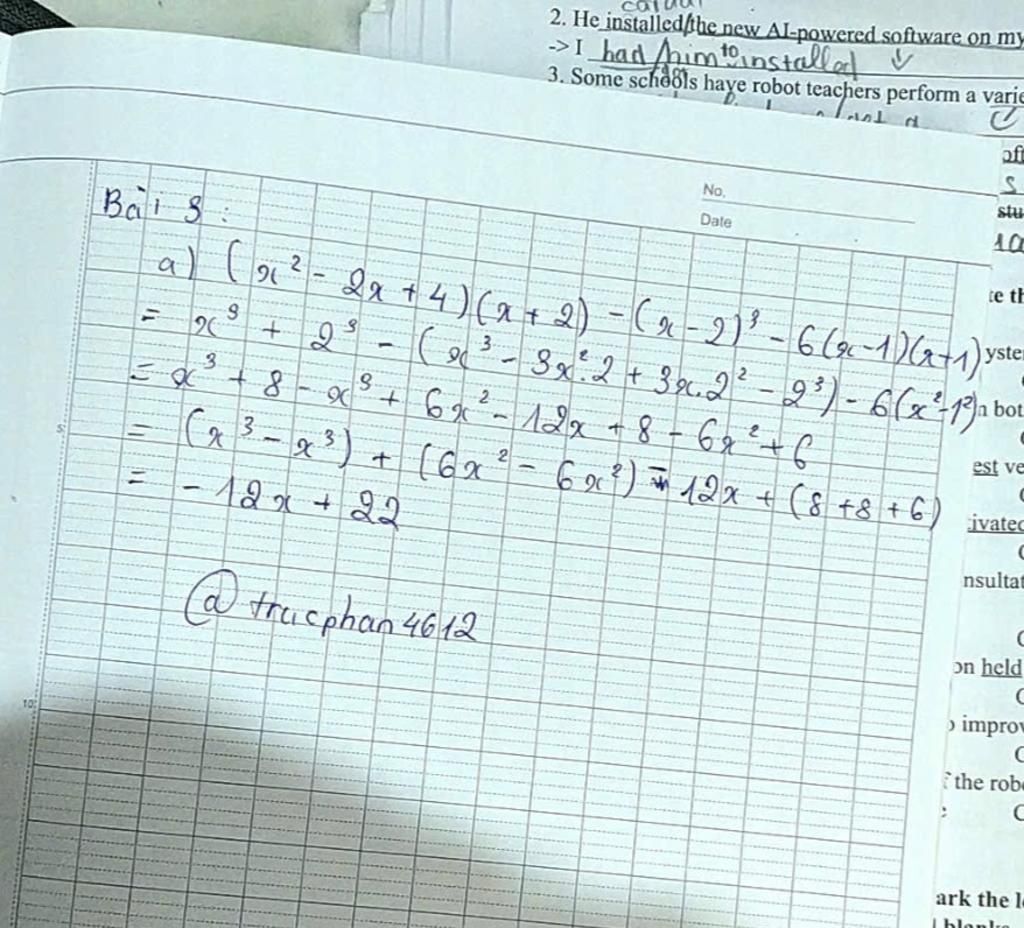 2. He installed the new AI-powered software on my
-> I had him to installed
3. Some schools have robot teachers perform a varie
No.
Date
Bài 3:
a) (x² - 2x + 4)(x + 2) - (x - 2)³ - 6(x - 1)(x + 1)
= x³ + 2³ - (x³ - 3x².2 + 3x.2² - 2³) - 6(x² - 1²)
= x³ + 8 - x³ + 6x² - 12x + 8 - 6x² + 6
= (x³ - x³) + (6x² - 6x²) - 12x + (8 + 8 + 6)
= -12x + 22
@trucphan4612
5
10
stu
yste
bot
est ve
ivated
nsultat
on held
improv
f the rob
ark the l